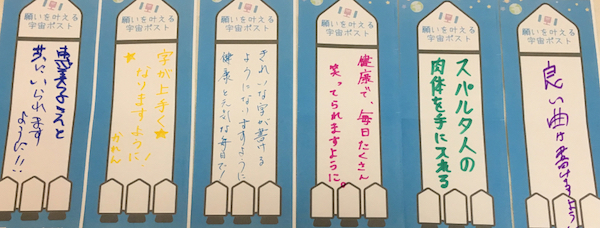 願いを叶える
宇宙ポスト
共にいられます
ように!!
願いを叶える
宇宙ポスト
字が上手く★
★なりますように!
かれん
願いを叶える
宇宙ポスト
きれいな字が書ける
ようになりますように
健康と元気な毎日
願いを叶える
宇宙ポスト
健康で、毎日たくさん
笑ってられますように。
願いを叶える
宇宙ポスト
スパルタ人の
肉体を手に入れる
願いを叶える
宇宙ポスト
良い曲が書けますよう